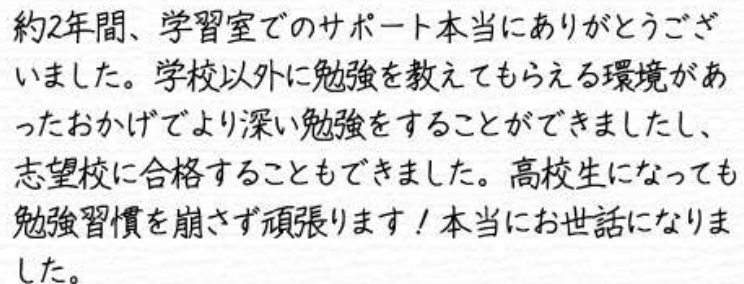 約2年間、学習室でのサポート本当にありがとうござ
いました。学校以外に勉強を教えてもらえる環境があ
ったおかげでより深い勉強をすることができましたし、
志望校に合格することもできました。高校生になっても
勉強習慣を崩さず頑張ります！本当にお世話になりま
した。